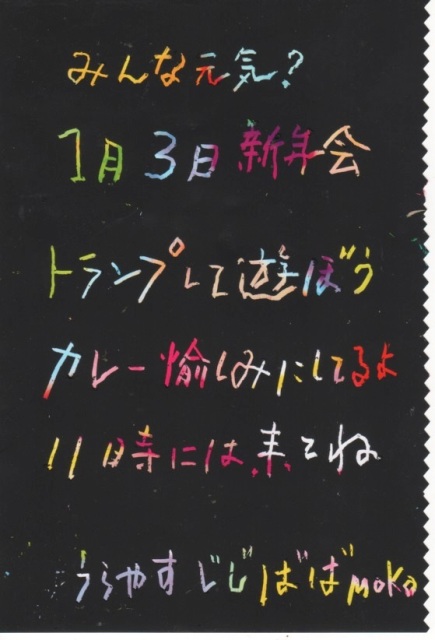 みんな元気?
1月3日新年会
トランプして遊ぼう
カレー愉しみにしてるよ
11時には来てね
うらやすじじばばmoko